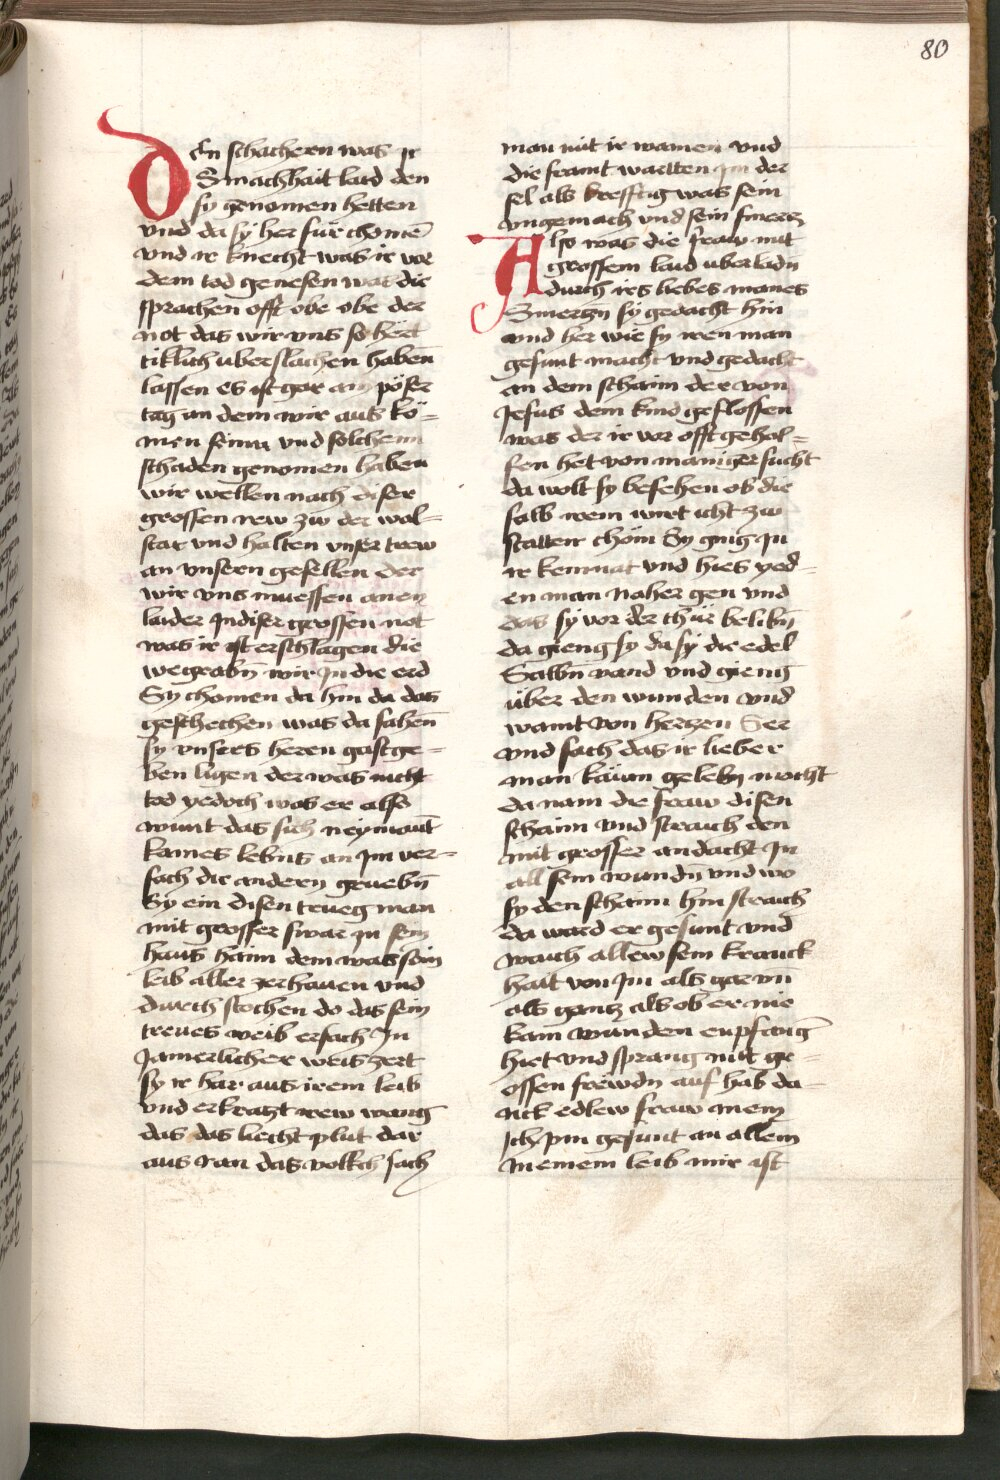 80
DEn schachern was ir
Smachhait laid den
sy genomen hetten
vnd da sy her für chomē
vnd ir knecht was ir vor
dem tod genesen was die
sprachen offt obe obe der
not das wir vns so hert
tiklich uberslachen haben
lassen es ist gar ain pöser
tag an dem wir aus kö=
men seinn vnd solchenn
schaden genomen haben
wir wellen nach diser
grossen rew zw der wal=
stat vnd halten vnser trew
an vnsern gesellen der
wir vns muessen anen
laider In diser grossen not
was ir ist erschlagen die
wegrabn̄ wir In die erd
Sy chomen da hin da das
geschechen was da sahen
sy vnsers heren gastge=
ben ligen der was nicht
tod yedoch was er also
wunt das sich neymant
kaines lebns an Im ver=
sach die andern gruebn̄
Sy ein disen trueg man
mit grosser swar in sein
haus haim dem was sein
leib aller zerhauen vnd
durch stochen do das sein
treues weib ersach In
Jamerlicher weis zert
sy ir har aus irem leib
vnd erkratzt irew wang
das das liecht plut dar
aus ran das volkch sach
man mit ir wainen vnd
die framt wartten In der
sel als krefftig was sein
vngemach vnd sein smercz
Also was die fraw mit
grossem laid uberladn̄
durch irs liebes manes
Smerczn̄ sy gedacht hin
vnd her wie sy iren man
gesunt macht vnd gedacht
an dem schaim der von
Jesus dem kind geflossen
was der ir vor offt gehol=
fen het von maniger sucht
da wolt sy besehen ob die
salb irem wirt icht zw
statten chöm Sy gieng In
ir kemnat vnd hies yed=
en man naher gen vnd
das sy vor der thür belibn̄
da gieng sy da sy die edel
Salbn̄ vand vnd gieng
über den wunden vnd
waint von herczen Ser
vnd sach das ir lieber
man kaum gelebn̄ mocht
da nam die fraw disen
schaim vnd straich den
mit grosser andacht In
all sein wundn̄ vnd wo
sy den schaim hin straich
da ward er gesunt vnd
waich allew sein kranck
hait von Im als gar vn̄
als gantz als ob er nie
kain wunden enpfang
hiet vnd sprang mit gr=
ossen frewdn̄ auf hab da=
nck edlew fraw mein
Ich pin gesunt an allem
meinem leib mir ist